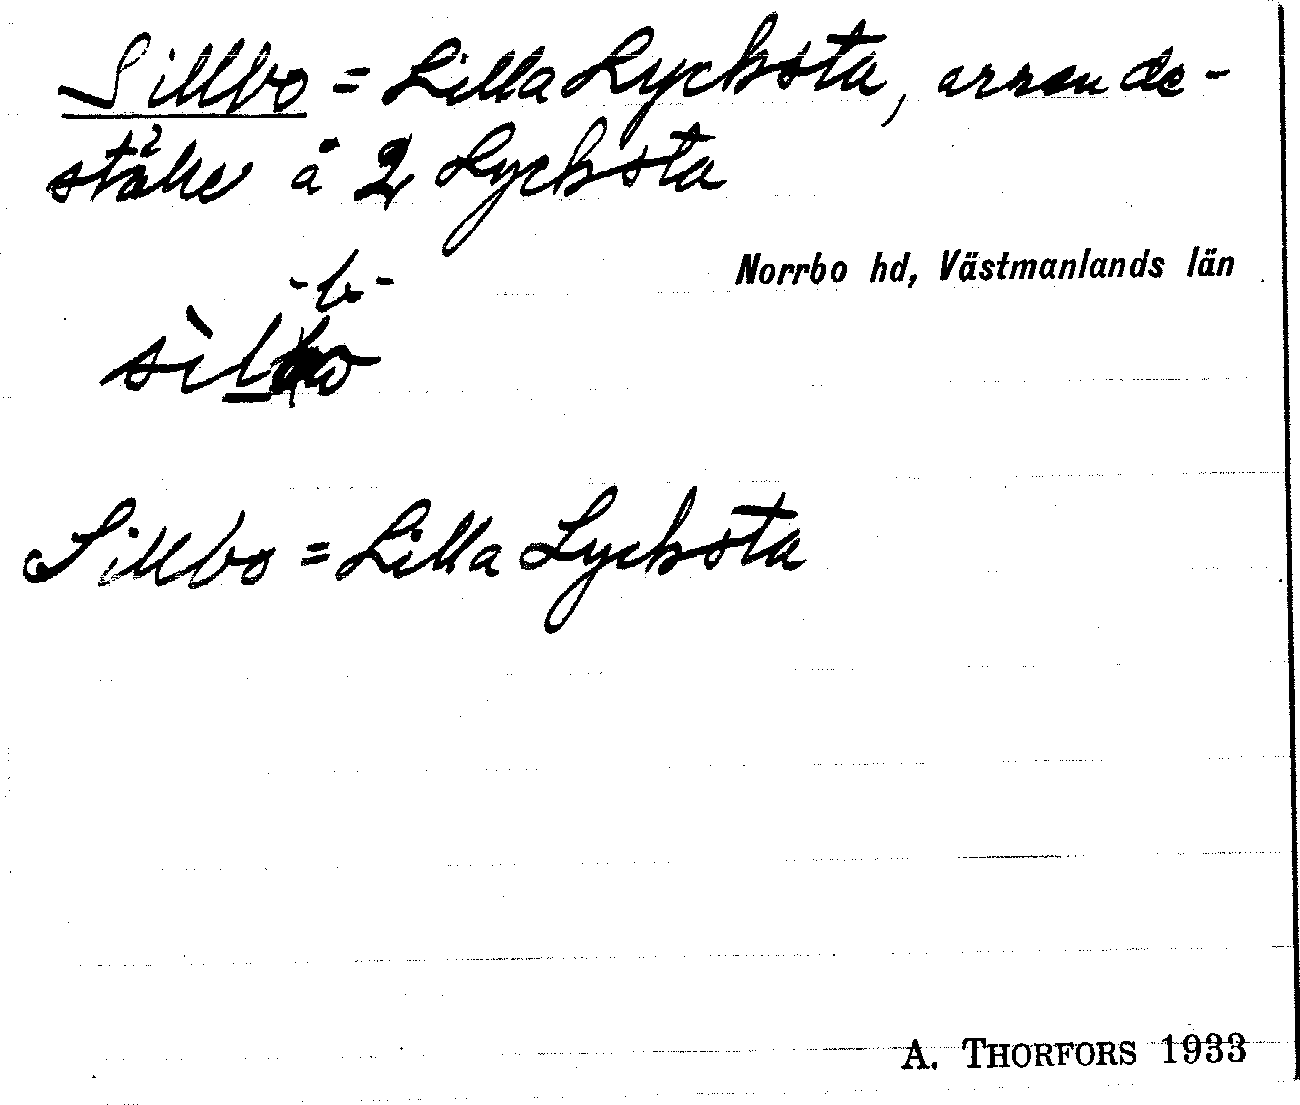 Sillbo = Lilla Lycksta, arrende-
ställe å 2 Lycksta
Norrbo hd, Västmanlands län
-b-
Sillbo = Lilla Lycksta
A. THORFORS 1933